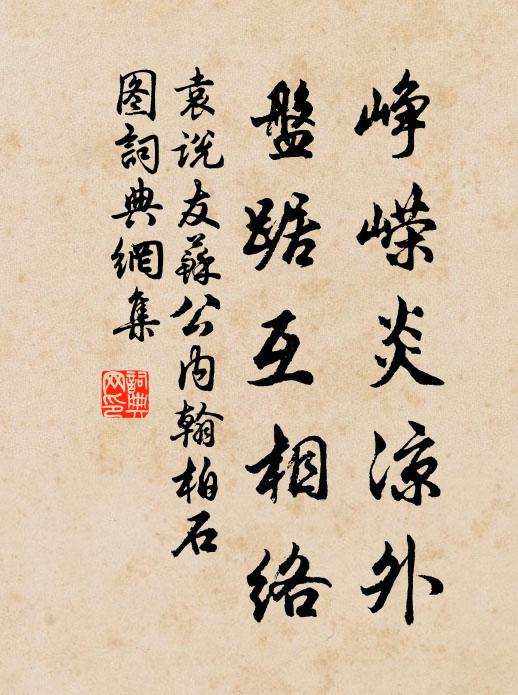 峥嵘炎凉外
盤踞互相絡
袁说友蘇公内翰柏石
图詞典網集
詞典
网印